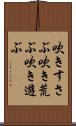 吹きすさ
ぶ吹き荒
ぶ吹き遊
ぶ